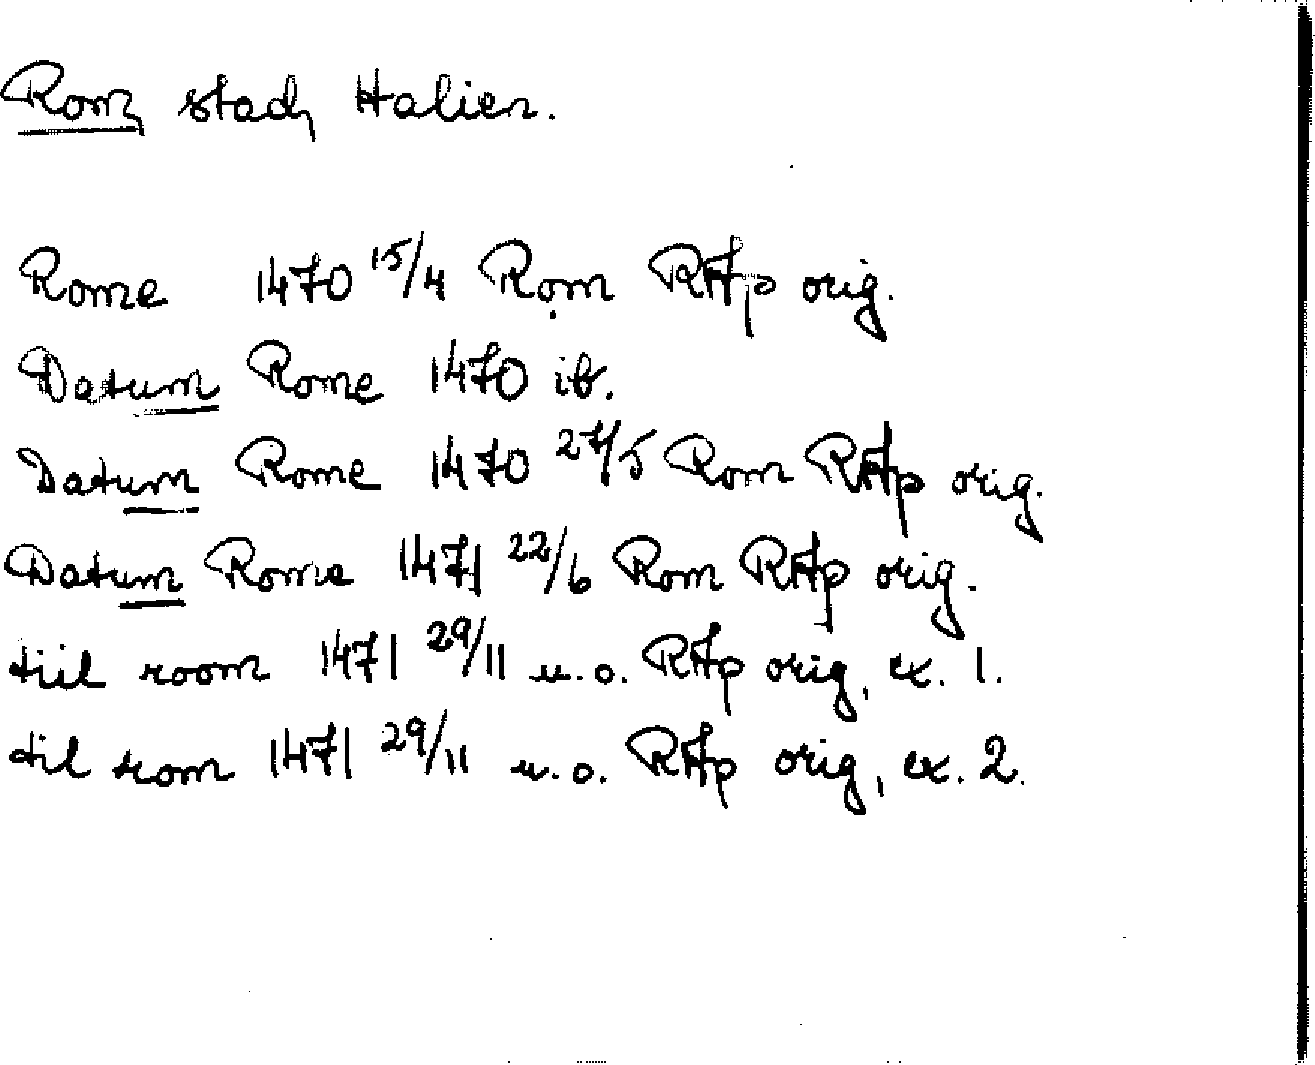 Rom, stad, Italien.
Rome 1470 15/4 Rom RAp orig.
Datum Rome 1470 ib.
Datum Rome 1470 27/5 Rom RAp orig.
Datum Rome 1471 22/6 Rom RAp orig.
tiil room 1471 29/11 u.o. RAp orig, ex. 1.
til rom 1471 29/11 u.o. RAp orig, ex. 2.